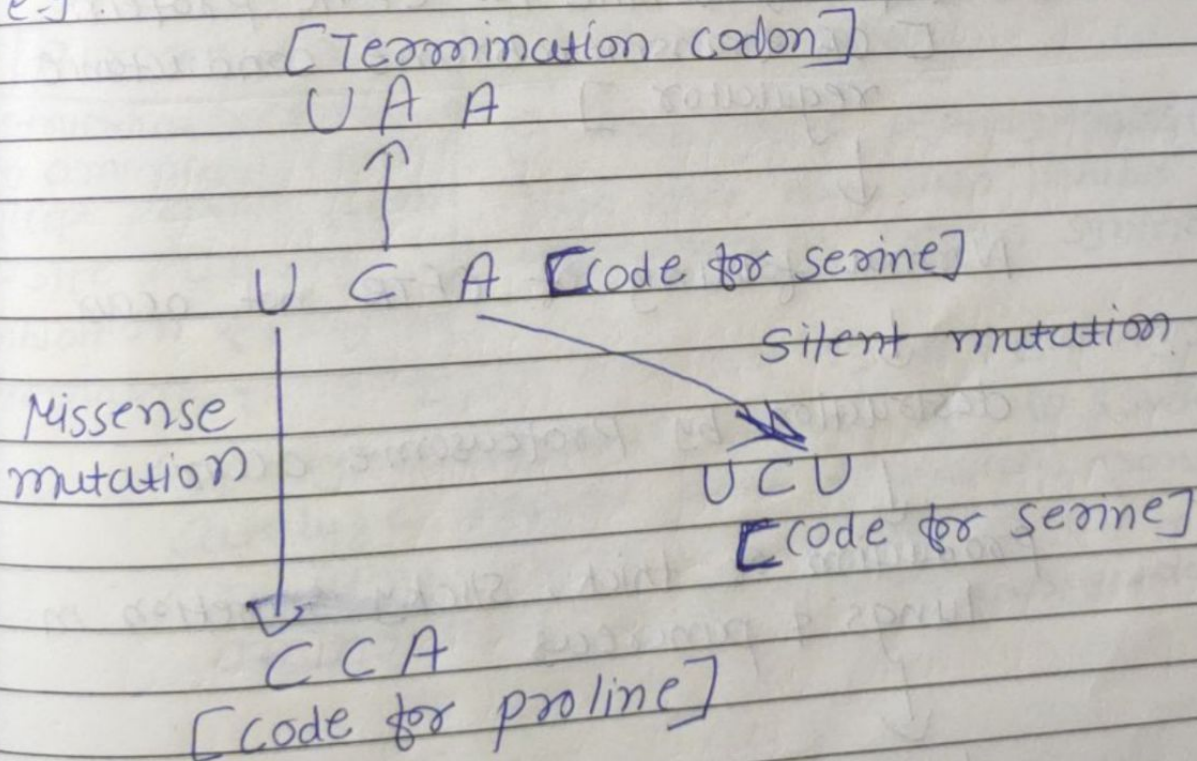 e.g.
[Termination codon]
U A A
U C A [Code for serine]
Silent mutation
Missense
mutation
U C U
[Code for serine]
C C A
[Code for proline]